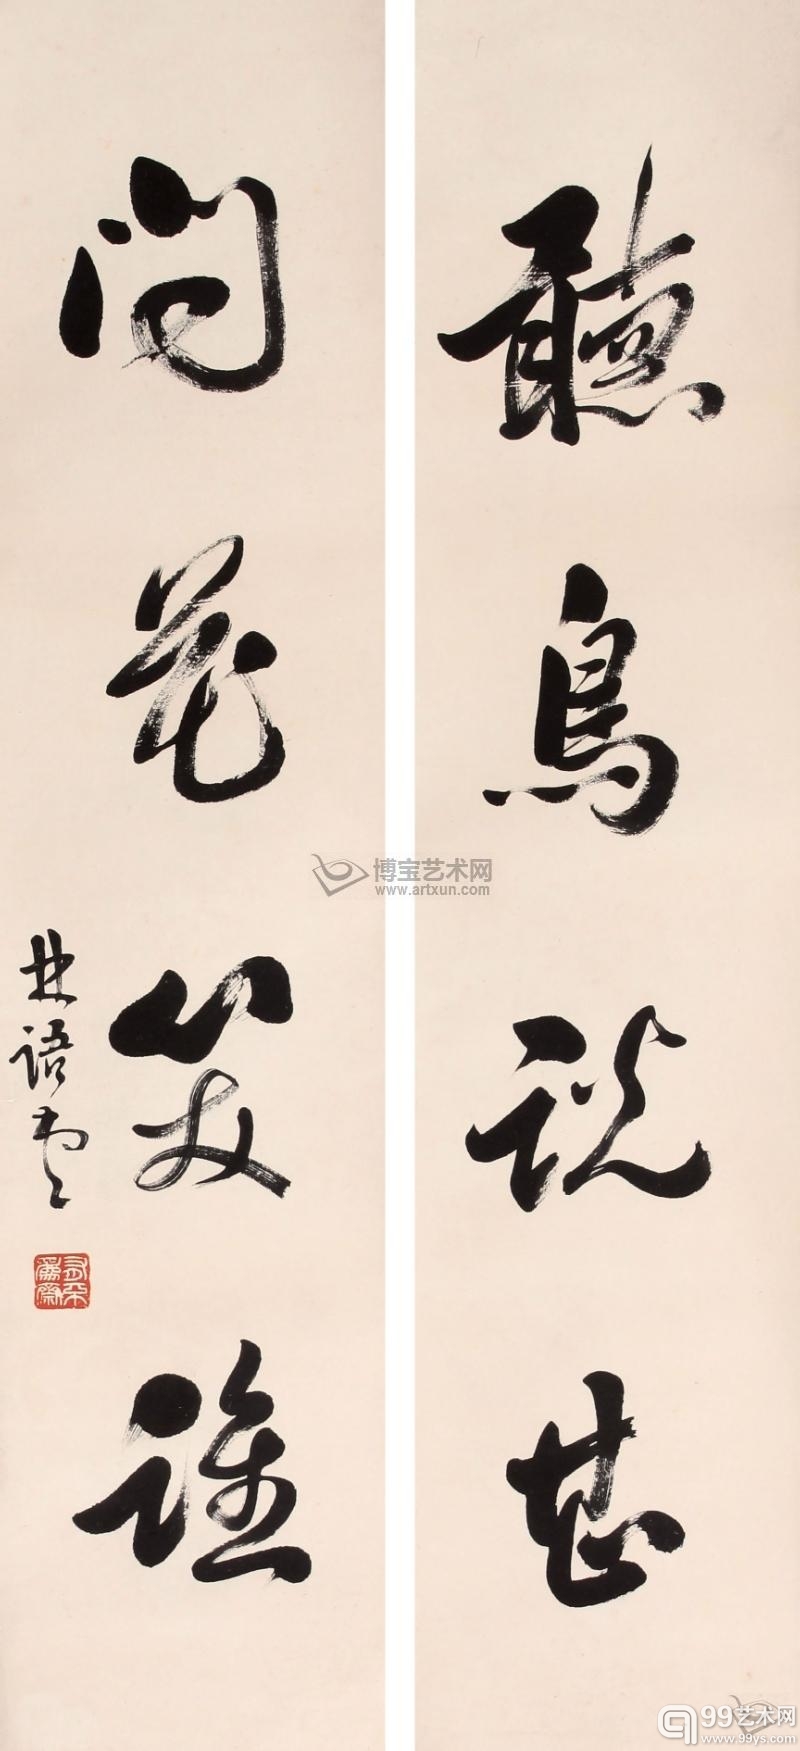 聽鳥說甚
問花笑誰
林語堂
博宝艺术网
www.artxun.com
99艺术网
www.99ys.com